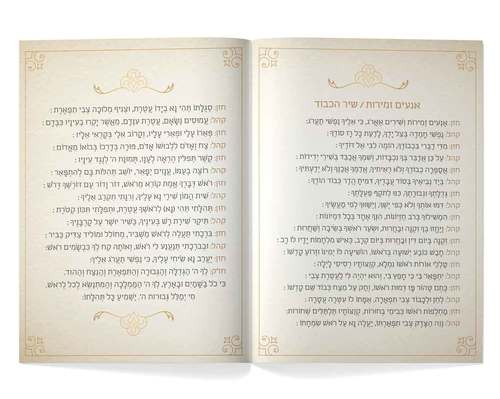 אנעים זמירות / שיר הכבוד
חזן: אַנְעִים זְמִירוֹת וְשִׁירִים אֶאֱרֹג, כִּי אֵלֶיךָ נַפְשִׁי תַעֲרֹג:
קהל: נַפְשִׁי חָמְדָה בְּצֵל יָדֶךָ, לָדַעַת כָּל רָז סוֹדֶךָ:
חזן: מִדֵּי דַבְּרִי בִּכְבוֹדֶךָ, הוֹמֶה לִבִּי אֶל דּוֹדֶיךָ:
קהל: עַל כֵּן אֲדַבֵּר בְּךָ נִכְבָּדוֹת, וְשִׁמְךָ אֲכַבֵּד בְּשִׁירֵי יְדִידוֹת:
חזן: אֲסַפְּרָה כְבוֹדְךָ וְלֹא רְאִיתִיךָ, אֲדַמְּךָ אֲכַנְּךָ וְלֹא יְדַעְתִּיךָ:
קהל: בְּיַד נְבִיאֶיךָ בְּסוֹד עֲבָדֶיךָ, דִּמִּיתָ הֲדַר כְּבוֹד הוֹדֶךָ:
חזן: גְּדֻלָּתְךָ וּגְבוּרָתֶךָ, כִּנּוּ לְתֹקֶף פְּעֻלָּתֶךָ:
קהל: דִּמּוּ אוֹתְךָ וְלֹא כְּפִי יֶשְׁךָ, וַיְשַׁוּוּךָ לְפִי מַעֲשֶׂיךָ:
חזן: הִמְשִׁילוּךָ בְּרֹב חֶזְיוֹנוֹת, הִנְּךָ אֶחָד בְּכָל דִּמְיוֹנוֹת:
קהל: וַיֶּחֱזוּ בְךָ זִקְנָה וּבַחֲרוּת, וּשְׂעַר רֹאשְׁךָ בְּשֵׂיבָה וְשַׁחֲרוּת:
חזן: זִקְנָה בְּיוֹם דִּין וּבַחֲרוּת בְּיוֹם קְרָב, כְּאִישׁ מִלְחָמוֹת יָדָיו לוֹ רָב:
קהל: חָבַשׁ כּוֹבַע יְשׁוּעָה בְּרֹאשׁוֹ, הוֹשִׁיעָה לּוֹ יְמִינוֹ וּזְרוֹעַ קָדְשׁוֹ:
חזן: טַלְלֵי אוֹרוֹת רֹאשׁוֹ נִמְלָא, קְוֻצּוֹתָיו רְסִיסֵי לָיְלָה:
קהל: יִתְפָּאֵר בִּי כִּי חָפֵץ בִּי, וְהוּא יִהְיֶה לִּי לַעֲטֶרֶת צְבִי:
חזן: כֶּתֶם טָהוֹר פָּז דְּמוּת רֹאשׁוֹ, וְחַק עַל מֵצַח כְּבוֹד שֵׁם קָדְשׁוֹ:
קהל: לְחֵן וּלְכָבוֹד צְבִי תִפְאָרָה, אֻמָּתוֹ לוֹ עִטְּרָה עֲטָרָה:
חזן: מַחְלְפוֹת רֹאשׁוֹ כְּבִימֵי בְחוּרוֹת, קְוֻצּוֹתָיו תַּלְתַּלִּים שְׁחוֹרוֹת:
קהל: נְוֵה הַצֶּדֶק צְבִי תִפְאַרְתּוֹ, יַעֲלֶה נָּא עַל רֹאשׁ שִׂמְחָתוֹ:
חזן: סְגֻלָּתוֹ תְּהִי נָא בְיָדוֹ עֲטֶרֶת, וּצְנִיף מְלוּכָה צְבִי תִפְאֶרֶת:
קהל: עֲמוּסִים נְשָׂאָם, עֲטֶרֶת עִנְּדָם, מֵאֲשֶׁר יָקְרוּ בְעֵינָיו כִּבְּדָם:
חזן: פְּאֵרוֹ עָלַי וּפְאֵרִי עָלָיו, וְקָרוֹב אֵלַי בְּקָרְאִי אֵלָיו:
קהל: צַח וְאָדוֹם לִלְבוּשׁוֹ אָדֹם, פּוּרָה בְּדָרְכוֹ בְּבוֹאוֹ מֵאֱדוֹם:
חזן: קֶשֶׁר תְּפִלִּין הֶרְאָה לֶעָנָו, תְּמוּנַת ה' לְנֶגֶד עֵינָיו:
קהל: רוֹצֶה בְעַמּוֹ, עֲנָוִים יְפָאֵר, יוֹשֵׁב תְּהִלּוֹת בָּם לְהִתְפָּאֵר:
חזן: רֹאשׁ דְּבָרְךָ אֱמֶת קוֹרֵא מֵרֹאשׁ, דּוֹר וָדוֹר עַם דּוֹרֶשְׁךָ דְּרֹשׁ:
קהל: שִׁית הֲמוֹן שִׁירַי נָא עָלֶיךָ, וְרִנָּתִי תִּקְרַב אֵלֶיךָ:
חזן: תְּהִלָּתִי תְּהִי (נָא) לְרֹאשְׁךָ עֲטֶרֶת, וּתְפִלָּתִי תִּכּוֹן קְטֹרֶת:
קהל: תִּיקַר שִׁירַת רָשׁ בְּעֵינֶיךָ, כַּשִּׁיר יוּשַׁר עַל קָרְבָּנֶיךָ:
חזן: בִּרְכָתִי תַעֲלֶה לְרֹאשׁ מַשְׁבִּיר, מְחוֹלֵל וּמוֹלִיד צַדִּיק כַּבִּיר:
קהל: וּבְבִרְכָתִי תְנַעֲנַע לִי רֹאשׁ, וְאוֹתָהּ קַח לְךָ כִּבְשָׂמִים רֹאשׁ:
חזן: יֶעֱרַב נָא שִׂיחִי עָלֶיךָ, כִּי נַפְשִׁי תַעֲרֹג אֵלֶיךָ:
חזן: לְךָ ה' הַגְּדֻלָּה וְהַגְּבוּרָה וְהַתִּפְאֶרֶת וְהַנֵּצַח וְהַהוֹד,
כִּי כֹל בַּשָּׁמַיִם וּבָאָרֶץ, לְךָ ה' הַמַּמְלָכָה וְהַמִּתְנַשֵּׂא לְכֹל לְרֹאשׁ.
מִי יְמַלֵּל גְּבוּרוֹת ה', יַשְׁמִיעַ כָּל תְּהִלָּתוֹ: